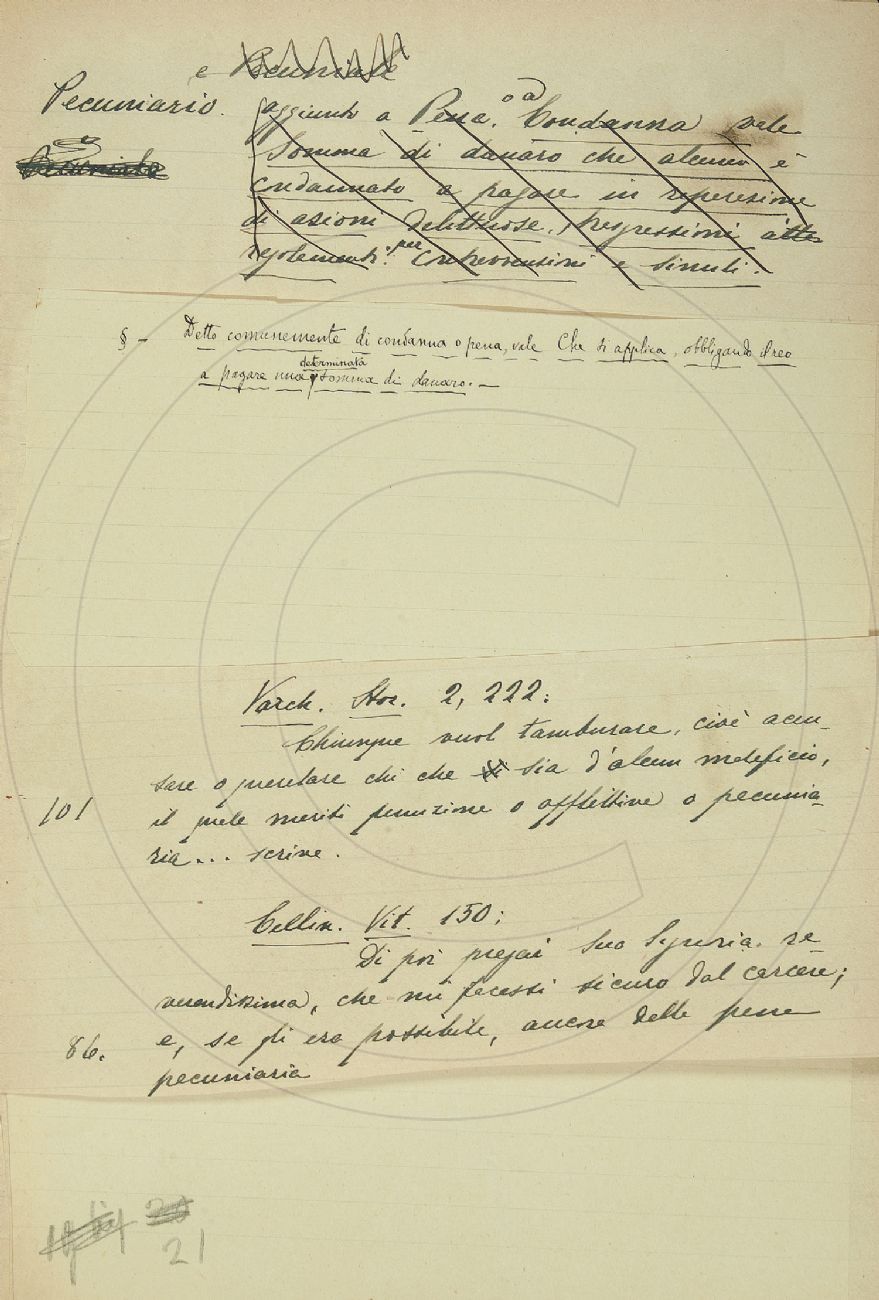 e Pecuniale
Pecuniario.
Aggiunto a Pena, o a Condanna vale
Somma di danaro che alcuno è
condannato a pagare in
di azioni delittuose,
regolamenti. per contravvenzioni e simili.
§ – Detto comunemente di condanna o pena, vale Che si applica, obbligando il reo
determinata
a pagare una somma di danaro. –
Varch. Stor. 2, 222:
Chiunque vuol tamburare, cioè accu-
sare o querelare chi che si sia d'alcun maleficio,
101
il quale meriti punizione o afflittiva o pecunia-
ria... scrive.
Cellin. Vit. 150:
Di poi pregai Sua Signoria re
verendissima, che mi facessi sicuro dal carcere;
86.
e, se gli era possibile, ancora della pena
pecuniaria
20
21